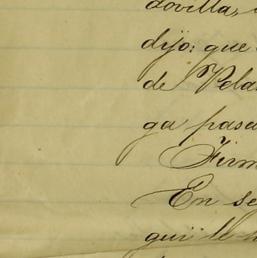 dovilla,
dijo: que
de Pela
ga pasa
Firm
En se
qui le h